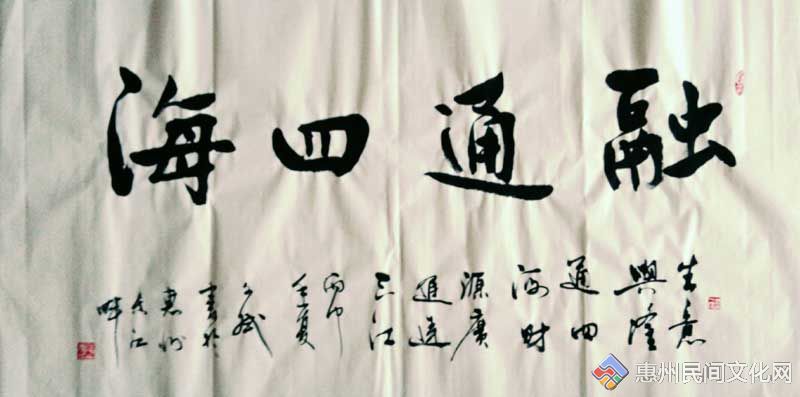 融通四海
生意
興隆
通四
海財
源廣
進達
三江
丙申
夏
斌
書於
惠州
東江
畔
惠州民间文化网